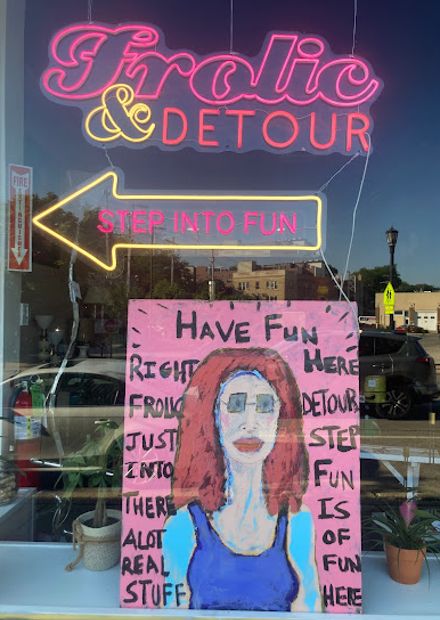 Frolic
& DETOUR
FIRE EXTINGUISHER
STEP INTO FUN
HAVE FUN
RIGHT HERE
FROLIC DETOUR
JUST STEP
INTO FUN
THERE IS
ALOT OF
REAL FUN
STUFF HERE